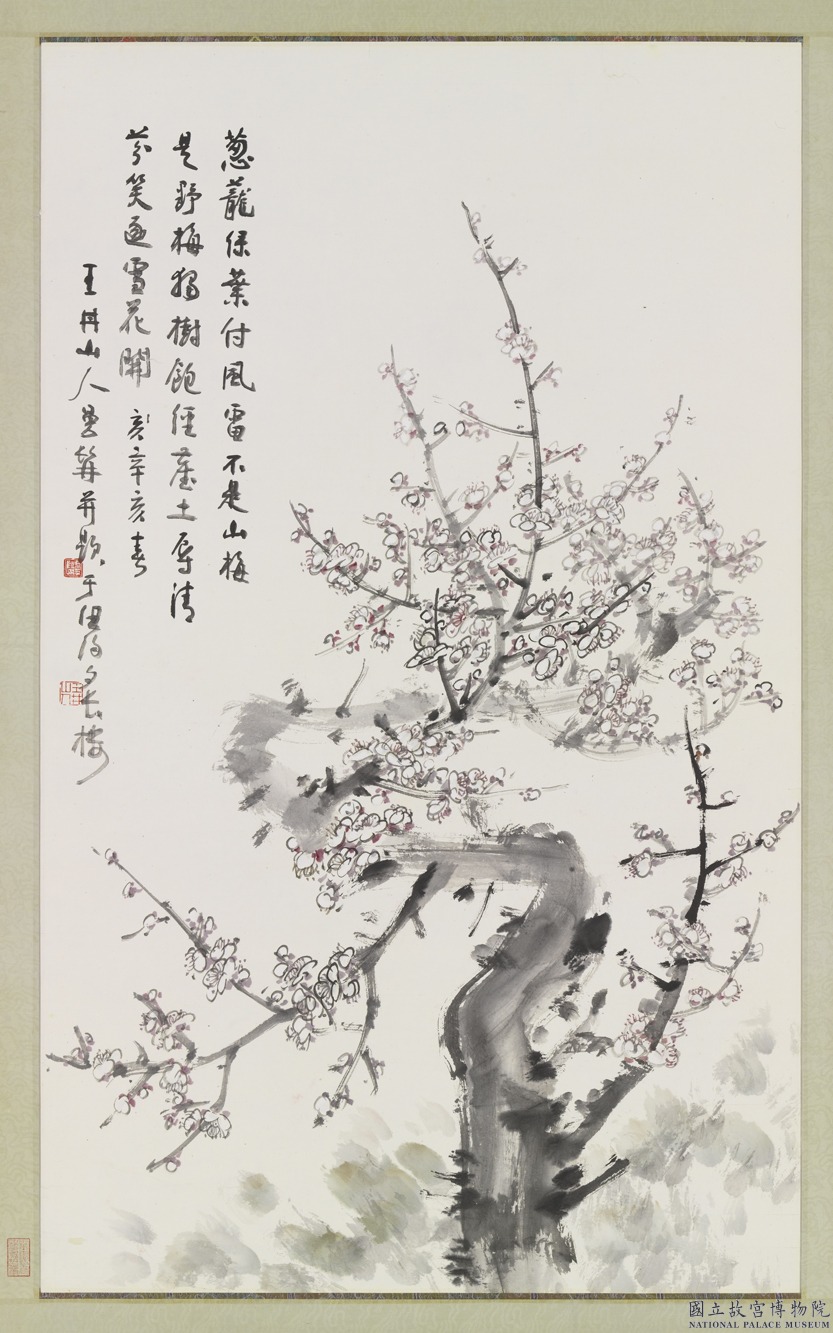 葱蘢綠葉付風雷不是山梅
是野梅獨樹飽經塵土辱清
芬笑逐雪花開 辛亥春
王丹山人畫并題于
國立故宮博物院
NATIONAL PALACE MUSEUM